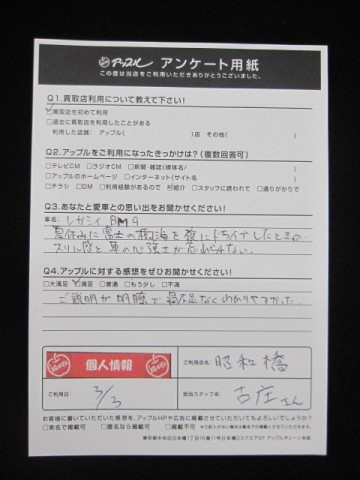 アップル アンケート用紙
この度は当店をご利用いただきありがとうございました。
Q1.買取店利用について教えて下さい!
□買取店を初めて利用
□過去に買取店を利用したことがある
利用した店舗: アップル( )店 その他( )
Q2.アップルをご利用になったきっかけは?(複数回答可)
□テレビCM □ラジオCM □新聞・雑誌(媒体名/ )
□アップルのホームページ □インターネット(サイト名 )
□チラシ □DM □利用経験があるので □紹介 □スタッフに誘われて □通りがかりで
Q3.あなたと愛車との思い出をお聞かせください!
車名: レガシィ BM9
夏休みに富士の樹海を夜にドライブしたときの
スリル感と車の心強さが忘れられない。
Q4.アップルに対する感想をぜひお聞かせください!
□大満足 □満足 □普通 □もう少し □不満
ご説明が明瞭で過不足なくわかりやすかった
個人情報
ご利用店名: 昭和橋
ご利用日: 3/3
担当スタッフ名: 古庄さん
お客様に書いていただいた感想を、アップルHPや広告に掲載させていただいてもよろしいでしょうか?
□実名で掲載可 □匿名なら掲載可 □掲載不可